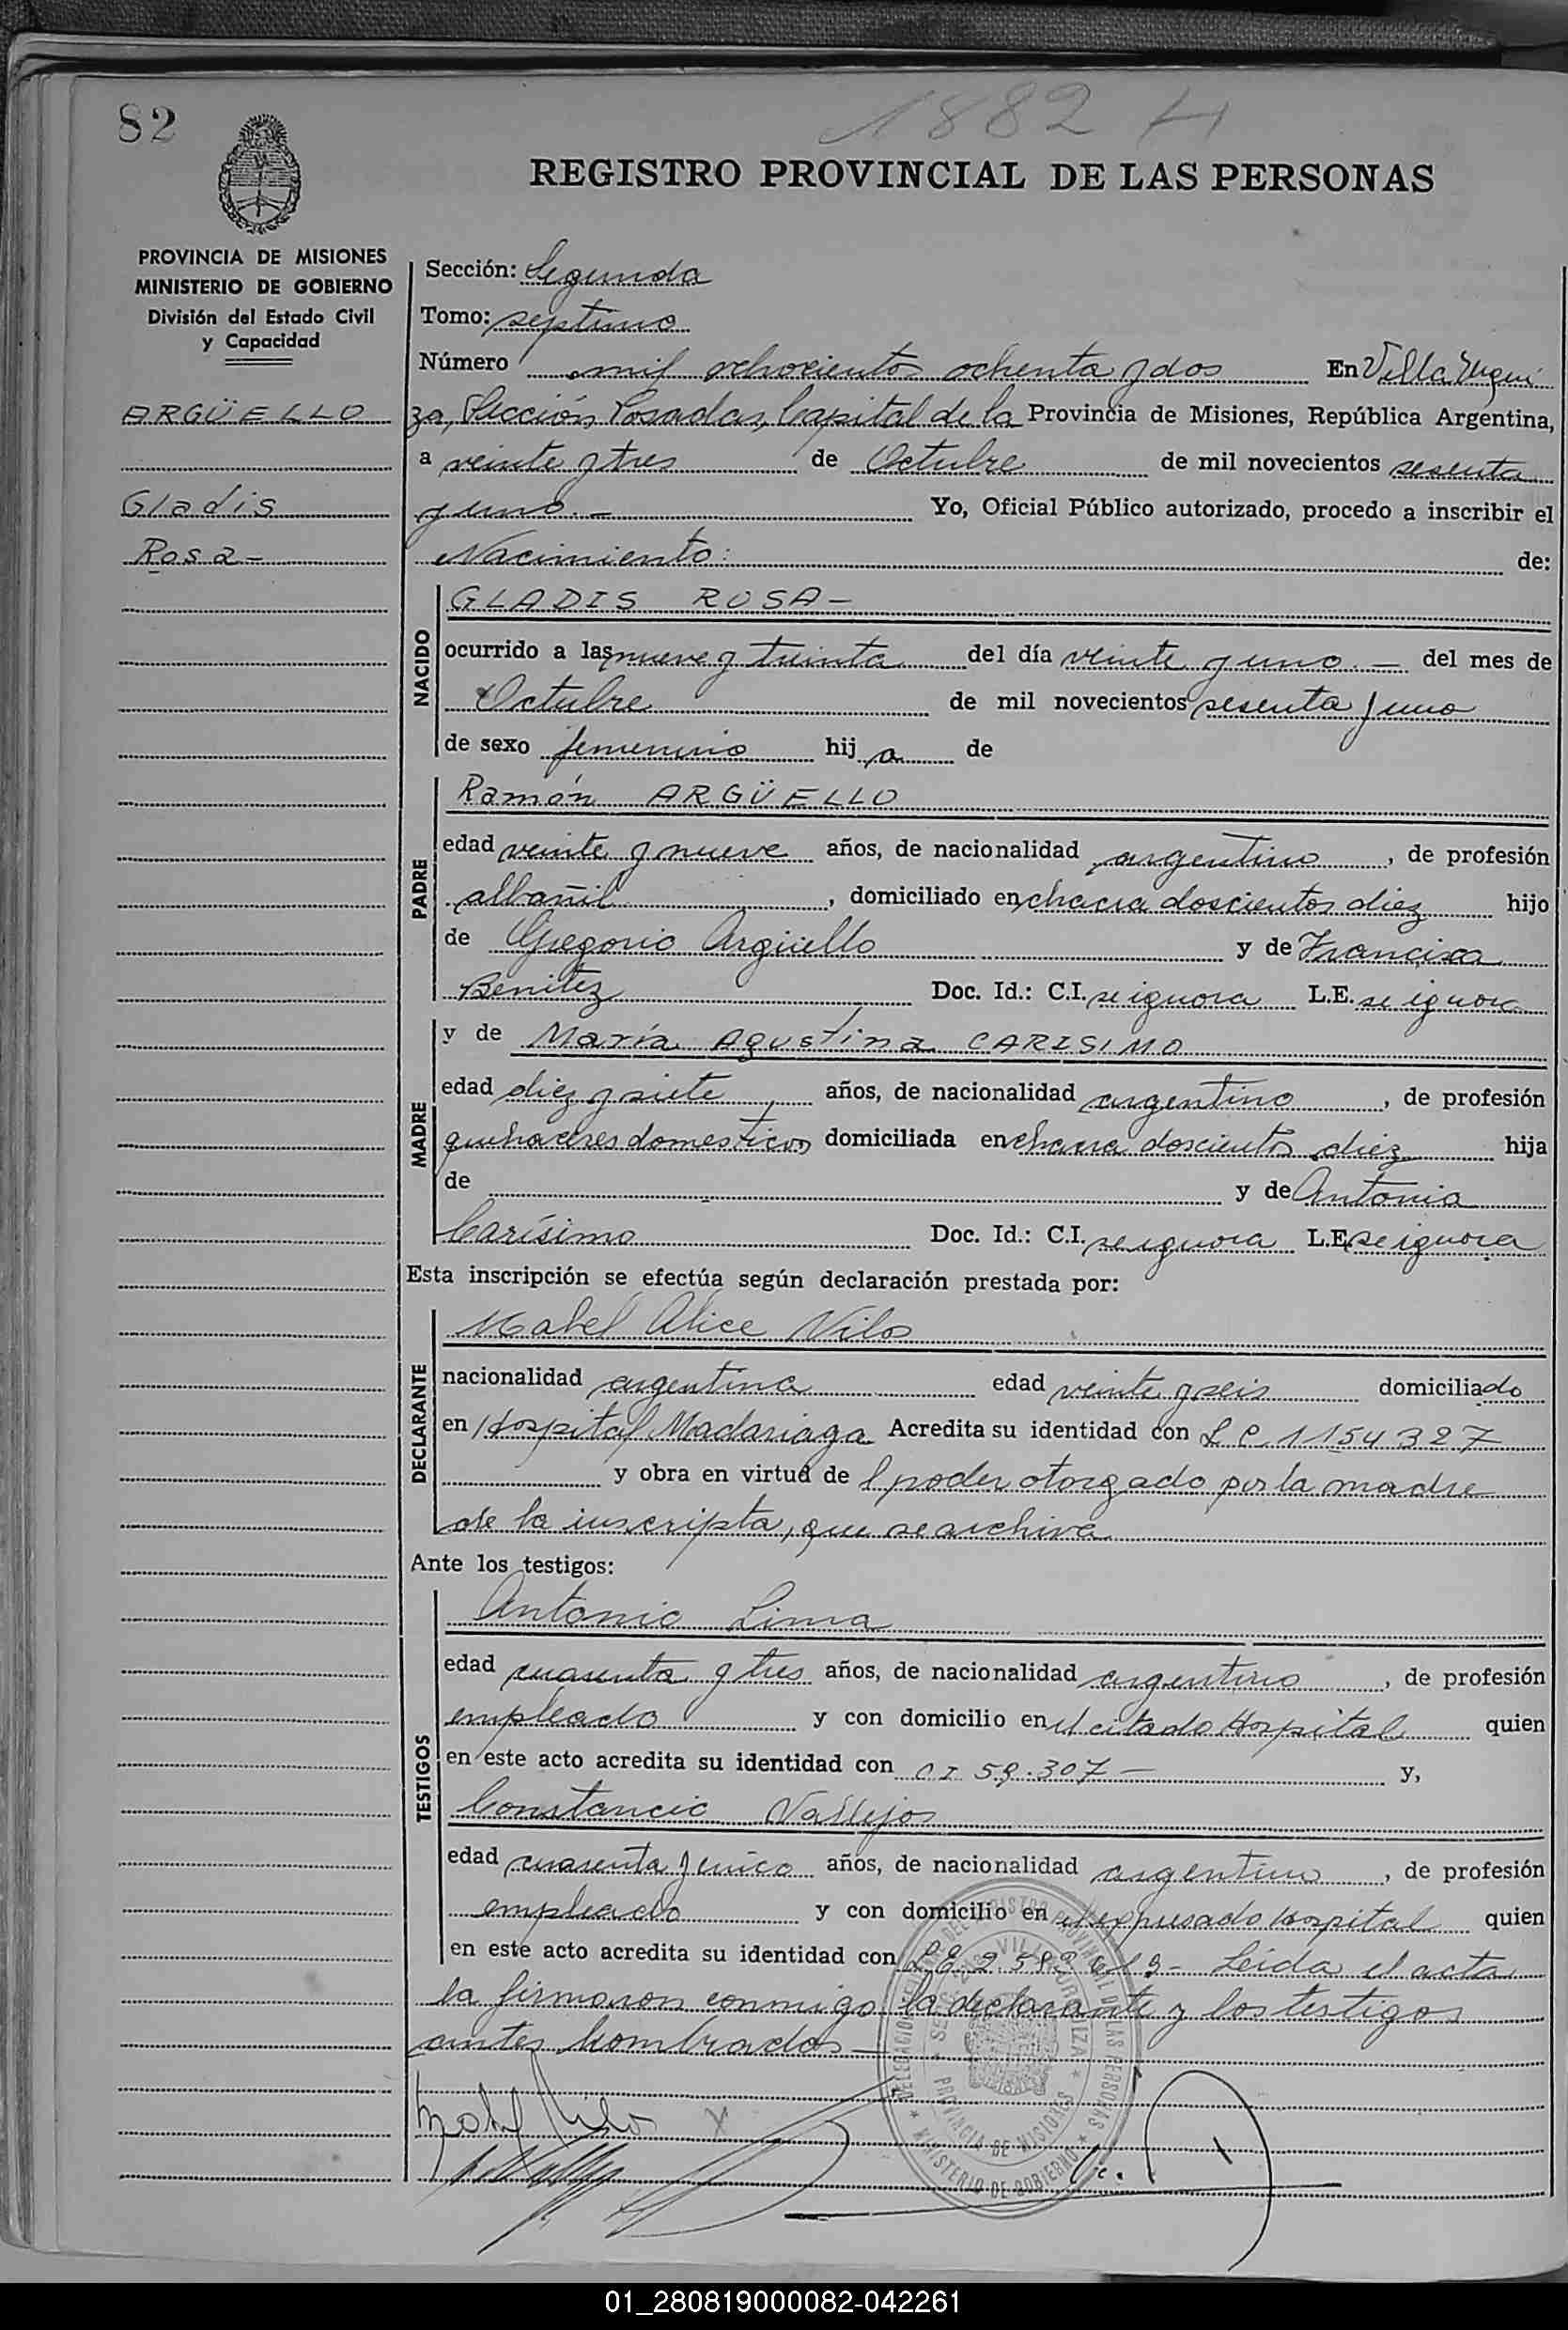 82
1882 H
REGISTRO PROVINCIAL DE LAS PERSONAS
PROVINCIA DE MISIONES
MINISTERIO DE GOBIERNO
División del Estado Civil
y Capacidad
ARGÜELLO
Gladis
Rosa-
Sección: Segunda
Tomo: septimo
Número mil ochocientos ochenta y dos En Villa Urqui
za, Sección Posadas, Capital de la Provincia de Misiones, República Argentina,
a veinte y tres de Octubre de mil novecientos sesenta
y uno.- Yo, Oficial Público autorizado, procedo a inscribir el
Nacimiento: de:
NACIDO
GLADIS ROSA-
ocurrido a las nueve y treinta del día veinte y uno.- del mes de
Octubre de mil novecientos sesenta y uno
de sexo femenino hij a de
PADRE
Ramón ARGÜELLO
edad veinte y nueve años, de nacionalidad argentino, de profesión
albañil, domiciliado en chacra doscientos diez hijo
de Gregorio Argüello y de Francisca
Benitez Doc. Id.: C.I. se ignora L.E. se ignora
MADRE
y de María Agustina CARISIMO
edad diez y siete años, de nacionalidad argentino, de profesión
quehaceres domesticos domiciliada en chacra doscientos diez hija
de y de Antonia
Carísimo Doc. Id.: C.I. se ignora L.E. se ignora
Esta inscripción se efectúa según declaración prestada por:
DECLARANTE
Mabel Alice Vilo
nacionalidad argentina edad veinte y seis domiciliado
en Hospital Madariaga Acredita su identidad con L C 1154327
y obra en virtud de l poder otorgado por la madre
de la inscripta, que se archiva
Ante los testigos:
TESTIGOS
Antonio Lima
edad cuarenta y tres años, de nacionalidad argentino, de profesión
empleado y con domicilio en el citado Hospital quien
en este acto acredita su identidad con CI 59.307- y,
Constancio Vallejos
edad cuarenta y cinco años, de nacionalidad argentino, de profesión
empleado y con domicilio en el expresado Hospital quien
en este acto acredita su identidad con L E 2.583 - Leída el acta
la firmaron conmigo la declarante y los testigos
antes nombrados-
Mabel Vilo
DELEGACION DEL REGISTRO PROVINCIAL DE LAS PERSONAS
VILLA URQUIZA
PROVINCIA DE MISIONES
MINISTERIO DE GOBIERNO
01_280819000082-042261